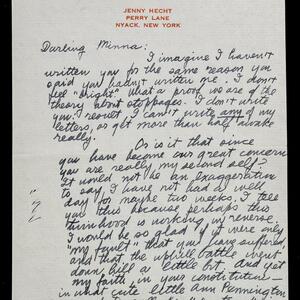 JENNY HECHT
PERRY LANE
NYACK, NEW YORK
Darling Minna:
I imagine I haven't
written you for the same reason you
said you hadn't written me. I don't
feel "bright". What a proof we are of the
theory about stoppages. I don't write
you: result, I can't write any of my
letters, or get more than half awake
really.
Or is it that since
you have become our great concern
you are really my second self?
It would not be an exaggeration
to say, I have not had a well
day for maybe two weeks. I tell
you this because perhaps this
is working in reverse.
I would be so glad if it were only
"my fault" that you have suffered,
and that the uphill battle went
down hill a little bit. And yet
my faith in your constitution—
in what cute little Ann Pennington